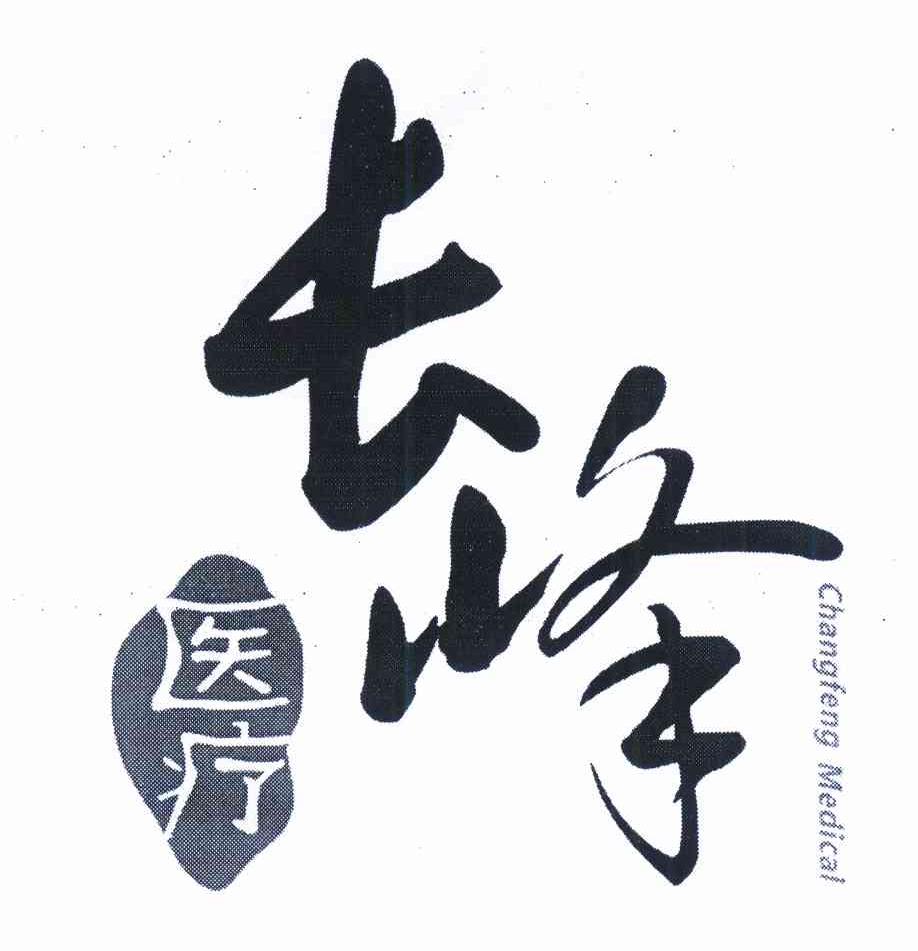 长峰
医疗
Changfeng Medical